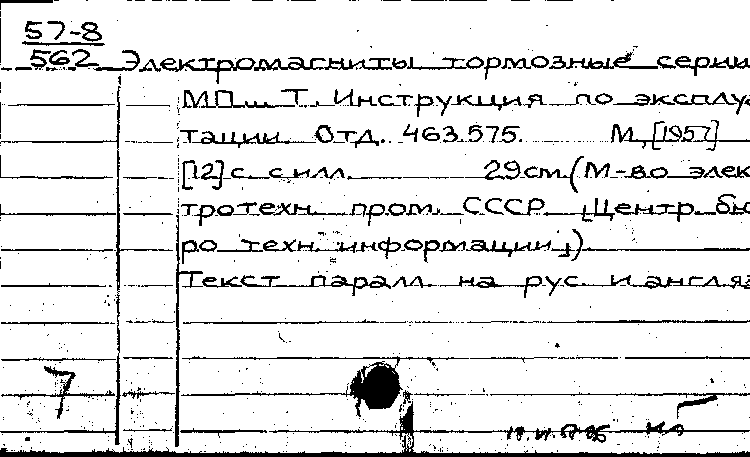 57-8
562 Электромагниты тормозные серии
МП и Т. Инструкция по эксплуа
тации. Отд. 463.575. М., [1957]
[12] с. с илл. 29 см. (М-во элек
тротехн. пром. СССР. [Центр. бю
ро техн. информации])
Текст паралл. на рус. и англ. яз
7